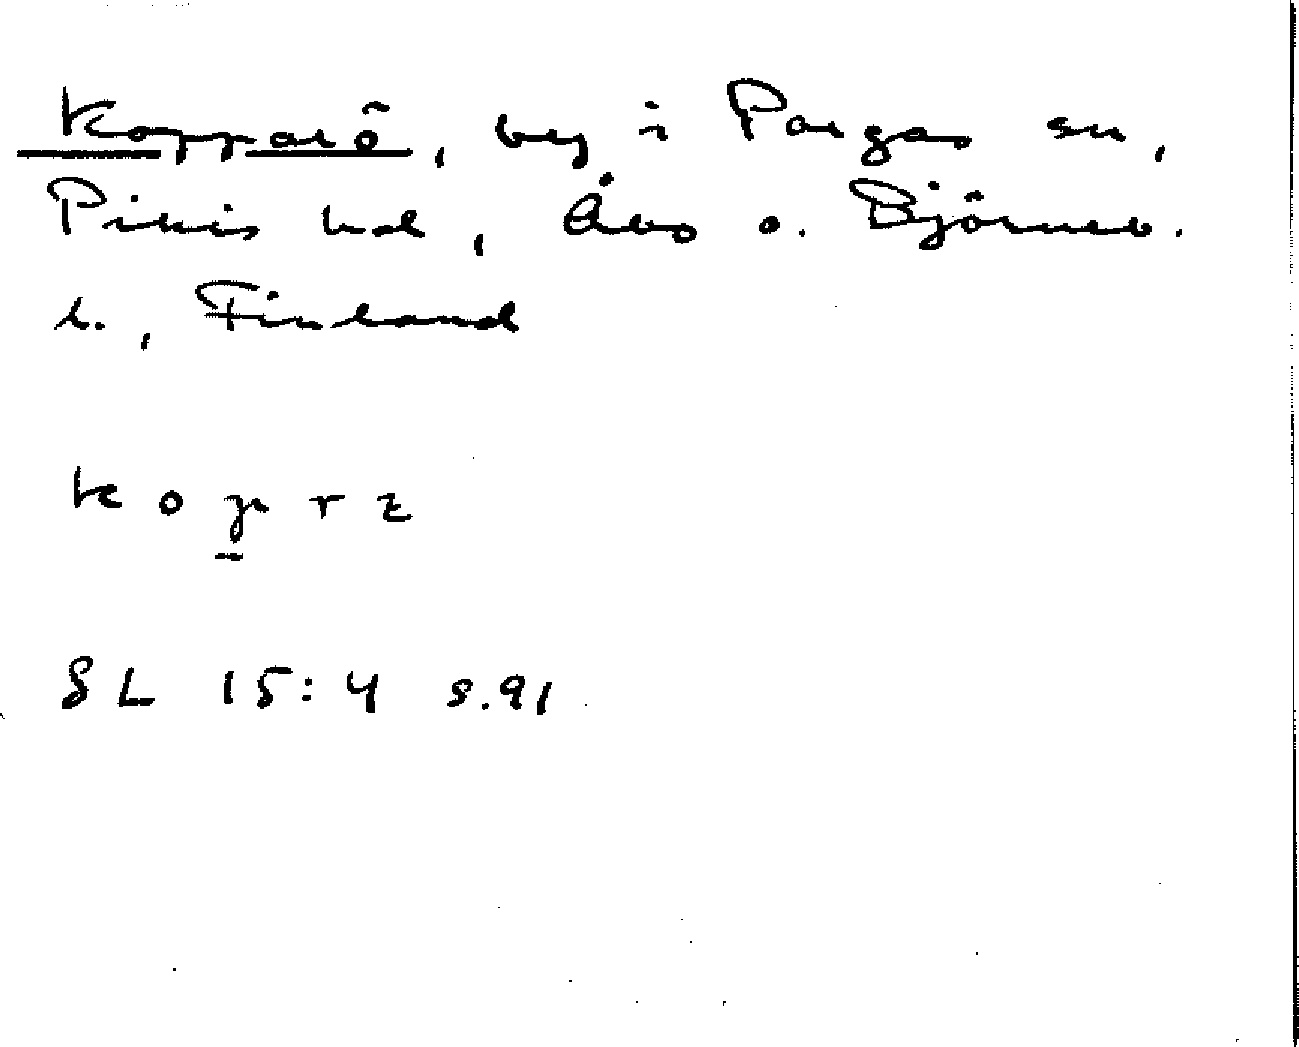 Kopparö, by i Pargas sn,
Pikis hd, Åbo o. Björneb.
l., Finland
SL 15:4 s.91